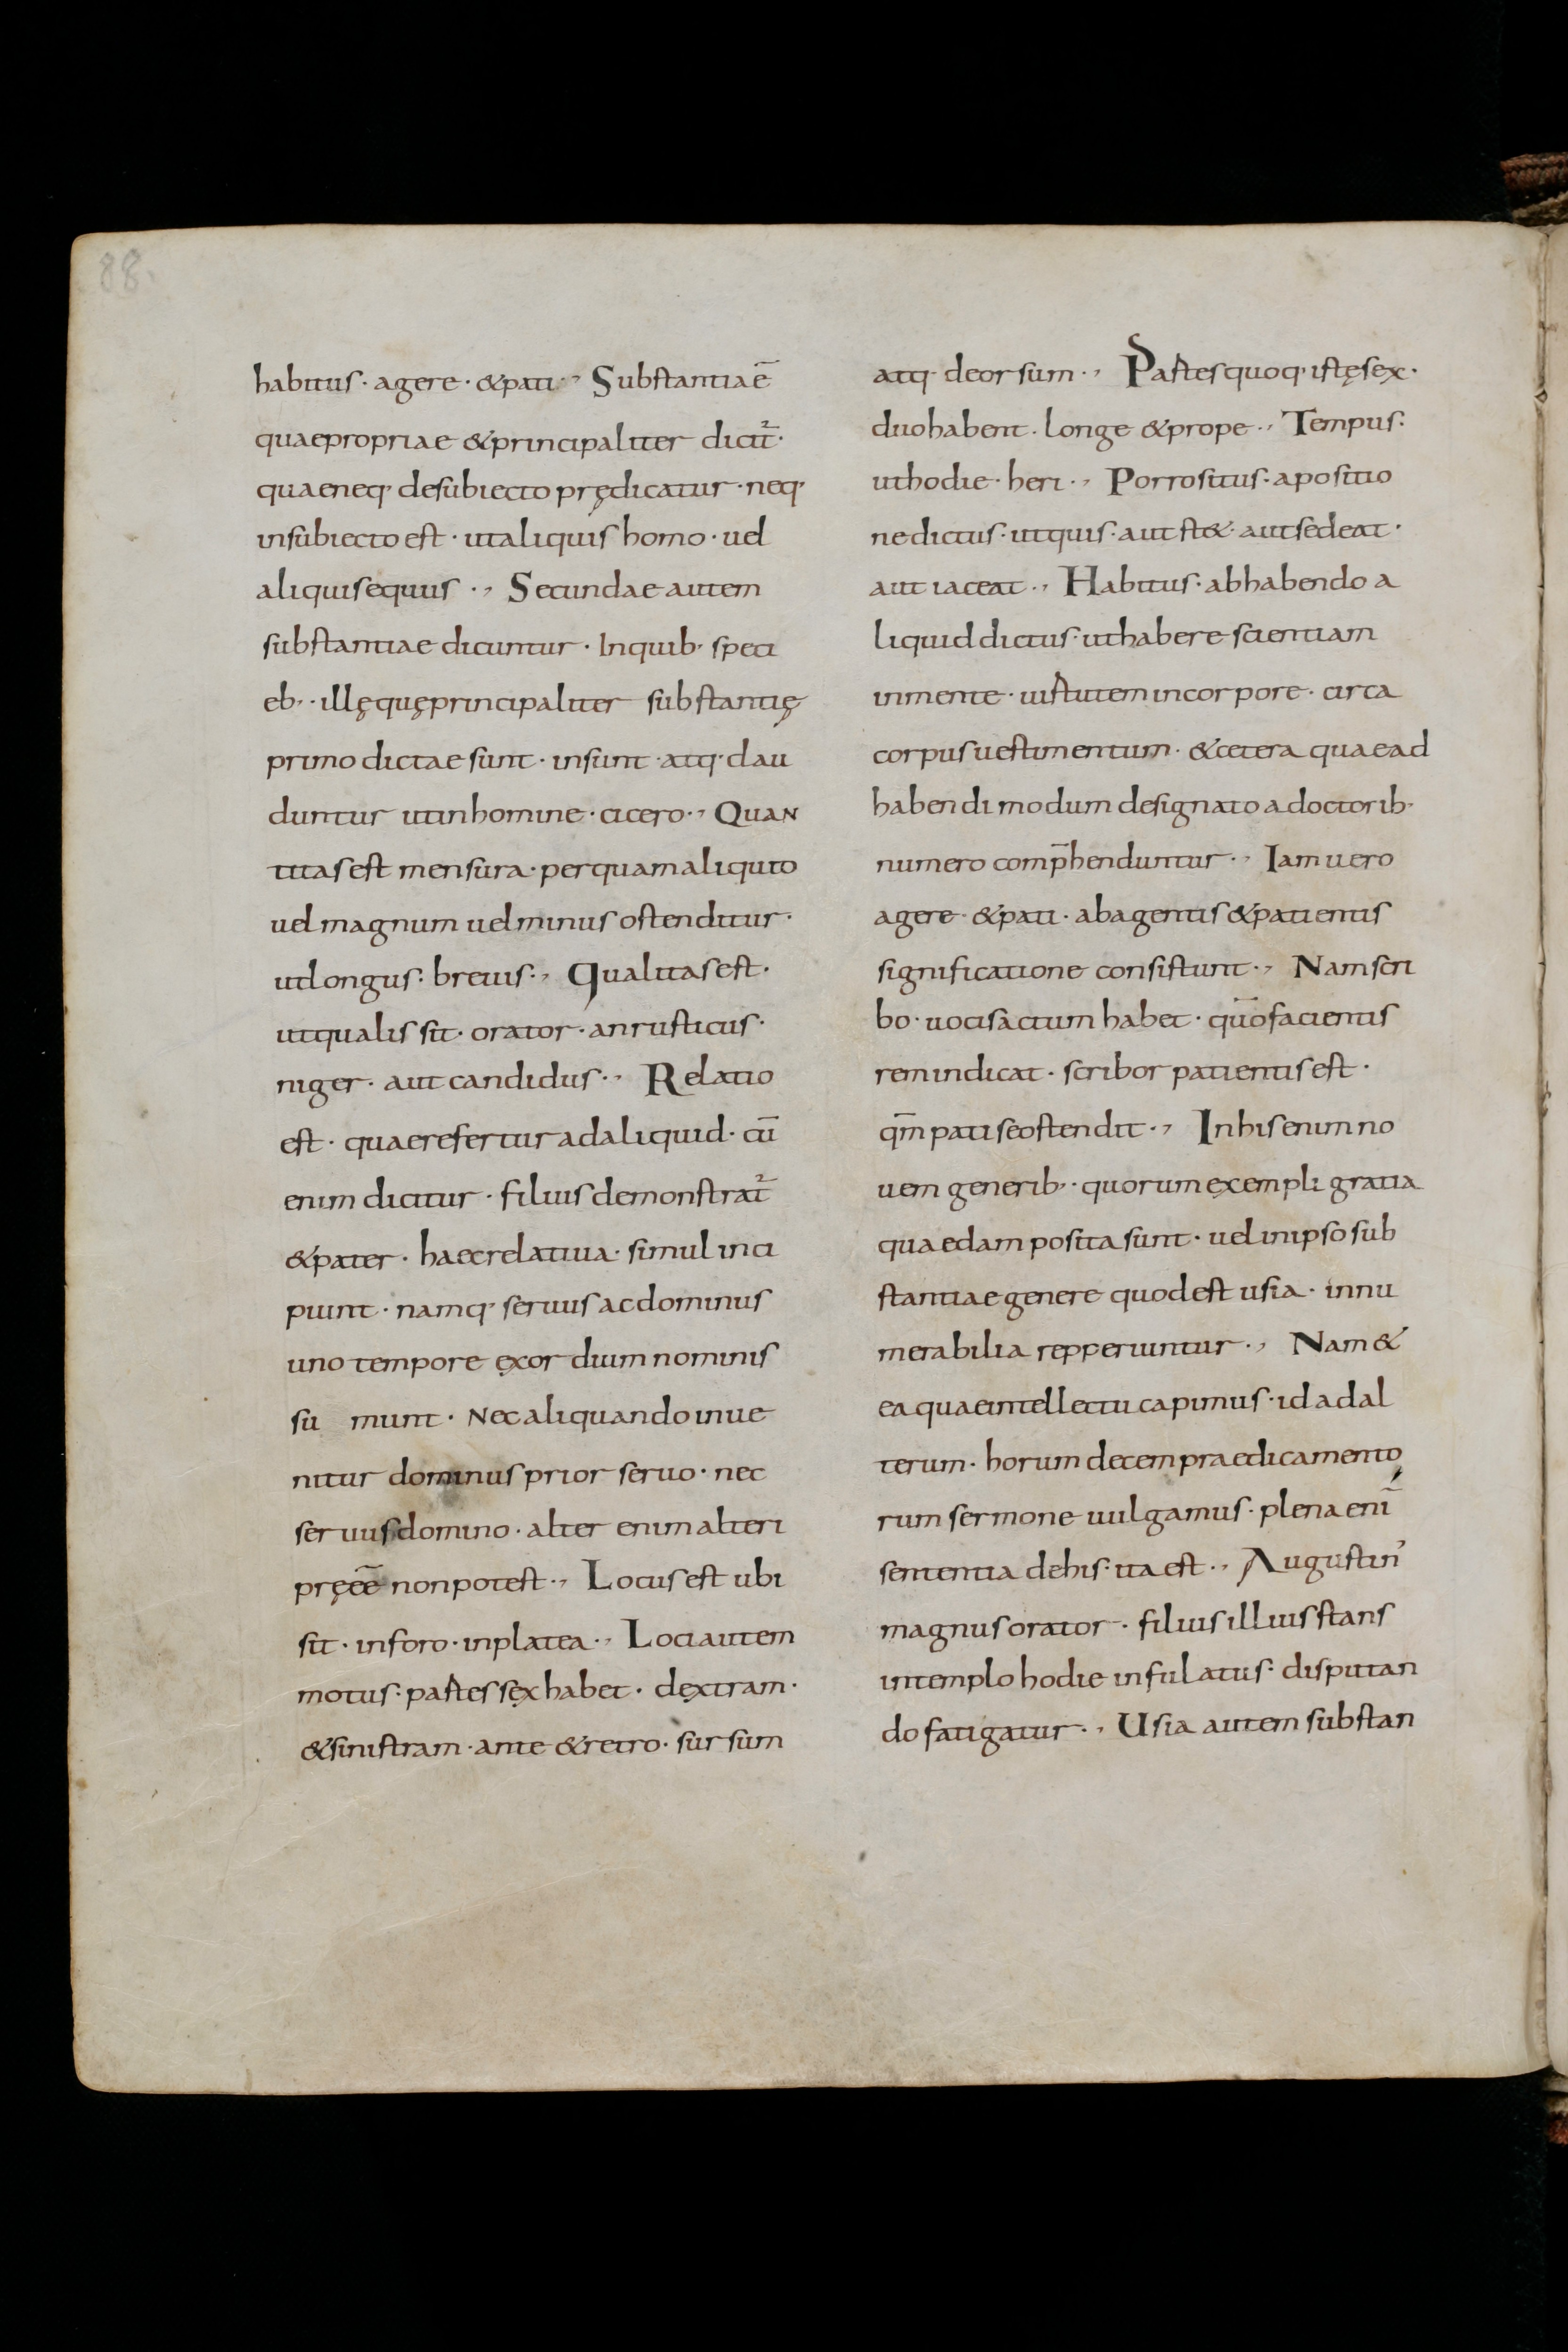 88.
habitus · agere · & pati ·, Substantia ē
quae propriae & principaliter dicit᷑ ·
quae neq· de subiecto prędicatur · neq·
in subiecto est · ut aliquis homo · uel
aliquis equus ·, Secundae autem
substantiae dicuntur · In quib· speci
eb· · illę quę principaliter substantię
primo dictae sunt · insunt · atq· clau
duntur ut in homine · cicero ·, Quan
titas est mensura · per quam aliquto
uel magnum uel minus ostenditur ·
ut longus : breuis :, Qualitas est ·
ut qualis sit · orator · an rusticus ·
niger · aut candidus ·, Relatio
est · quae refertur ad aliquid · cū
enim dicitur · filius demonstrat᷑
& pater · haec relatiua · simul inci
piunt · namq· seruus ac dominus
uno tempore exordium nominis
su munt · Nec aliquando inue
nitur dominus prior seruo · nec
seruus domino · alter enim alteri
pręēē non potest ·, Locus est ubi
sit · in foro · in platea ·, Loci autem
motus · partes sex habet · dextram ·
& sinistram · ante & retro · sursum
atq· deorsum ·, Partes quoq· istę sex ·
duo habent · longe & prope ·, Tempus :
ut hodie · heri ·, Porro situs · a positio
ne dictus · ut quis · aut st& · aut sedeat ·
aut iaceat ·, Habitus · ab habendo a
liquid dictus · ut habere scientiam
in mente · uirtutem in corpore · circa
corpus uestimentum · & cetera quae ad
habendi modum designato a doctorib·
numero comp̄henduntur ·, Iam uero
agere · & pati · ab agentis & patientis
significatione consistunt ·, Nam scri
bo · uocis actum habet · qūo facientis
rem indicat · scribor patientis est ·
qm̄ pati se ostendit ·, In his enim no
uem generib· · quorum exempli gratia
quaedam posita sunt · uel in ipso sub
stantiae genere quod est usia · innu
merabilia repperiuntur ·, Nam &
ea quae intellectu capimus · id ad al
terum · horum decem praedicamento
rum sermone uulgamus · plena enī
sententia de his · ita est ·, Augustin᾿
magnus orator · filius illius stans
in templo hodie infulatus · disputan
do fatigatur ·, Usia autem substan